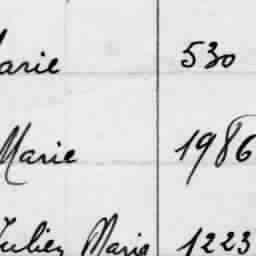 Marie 530
Marie 1986
Julien Marie 1223